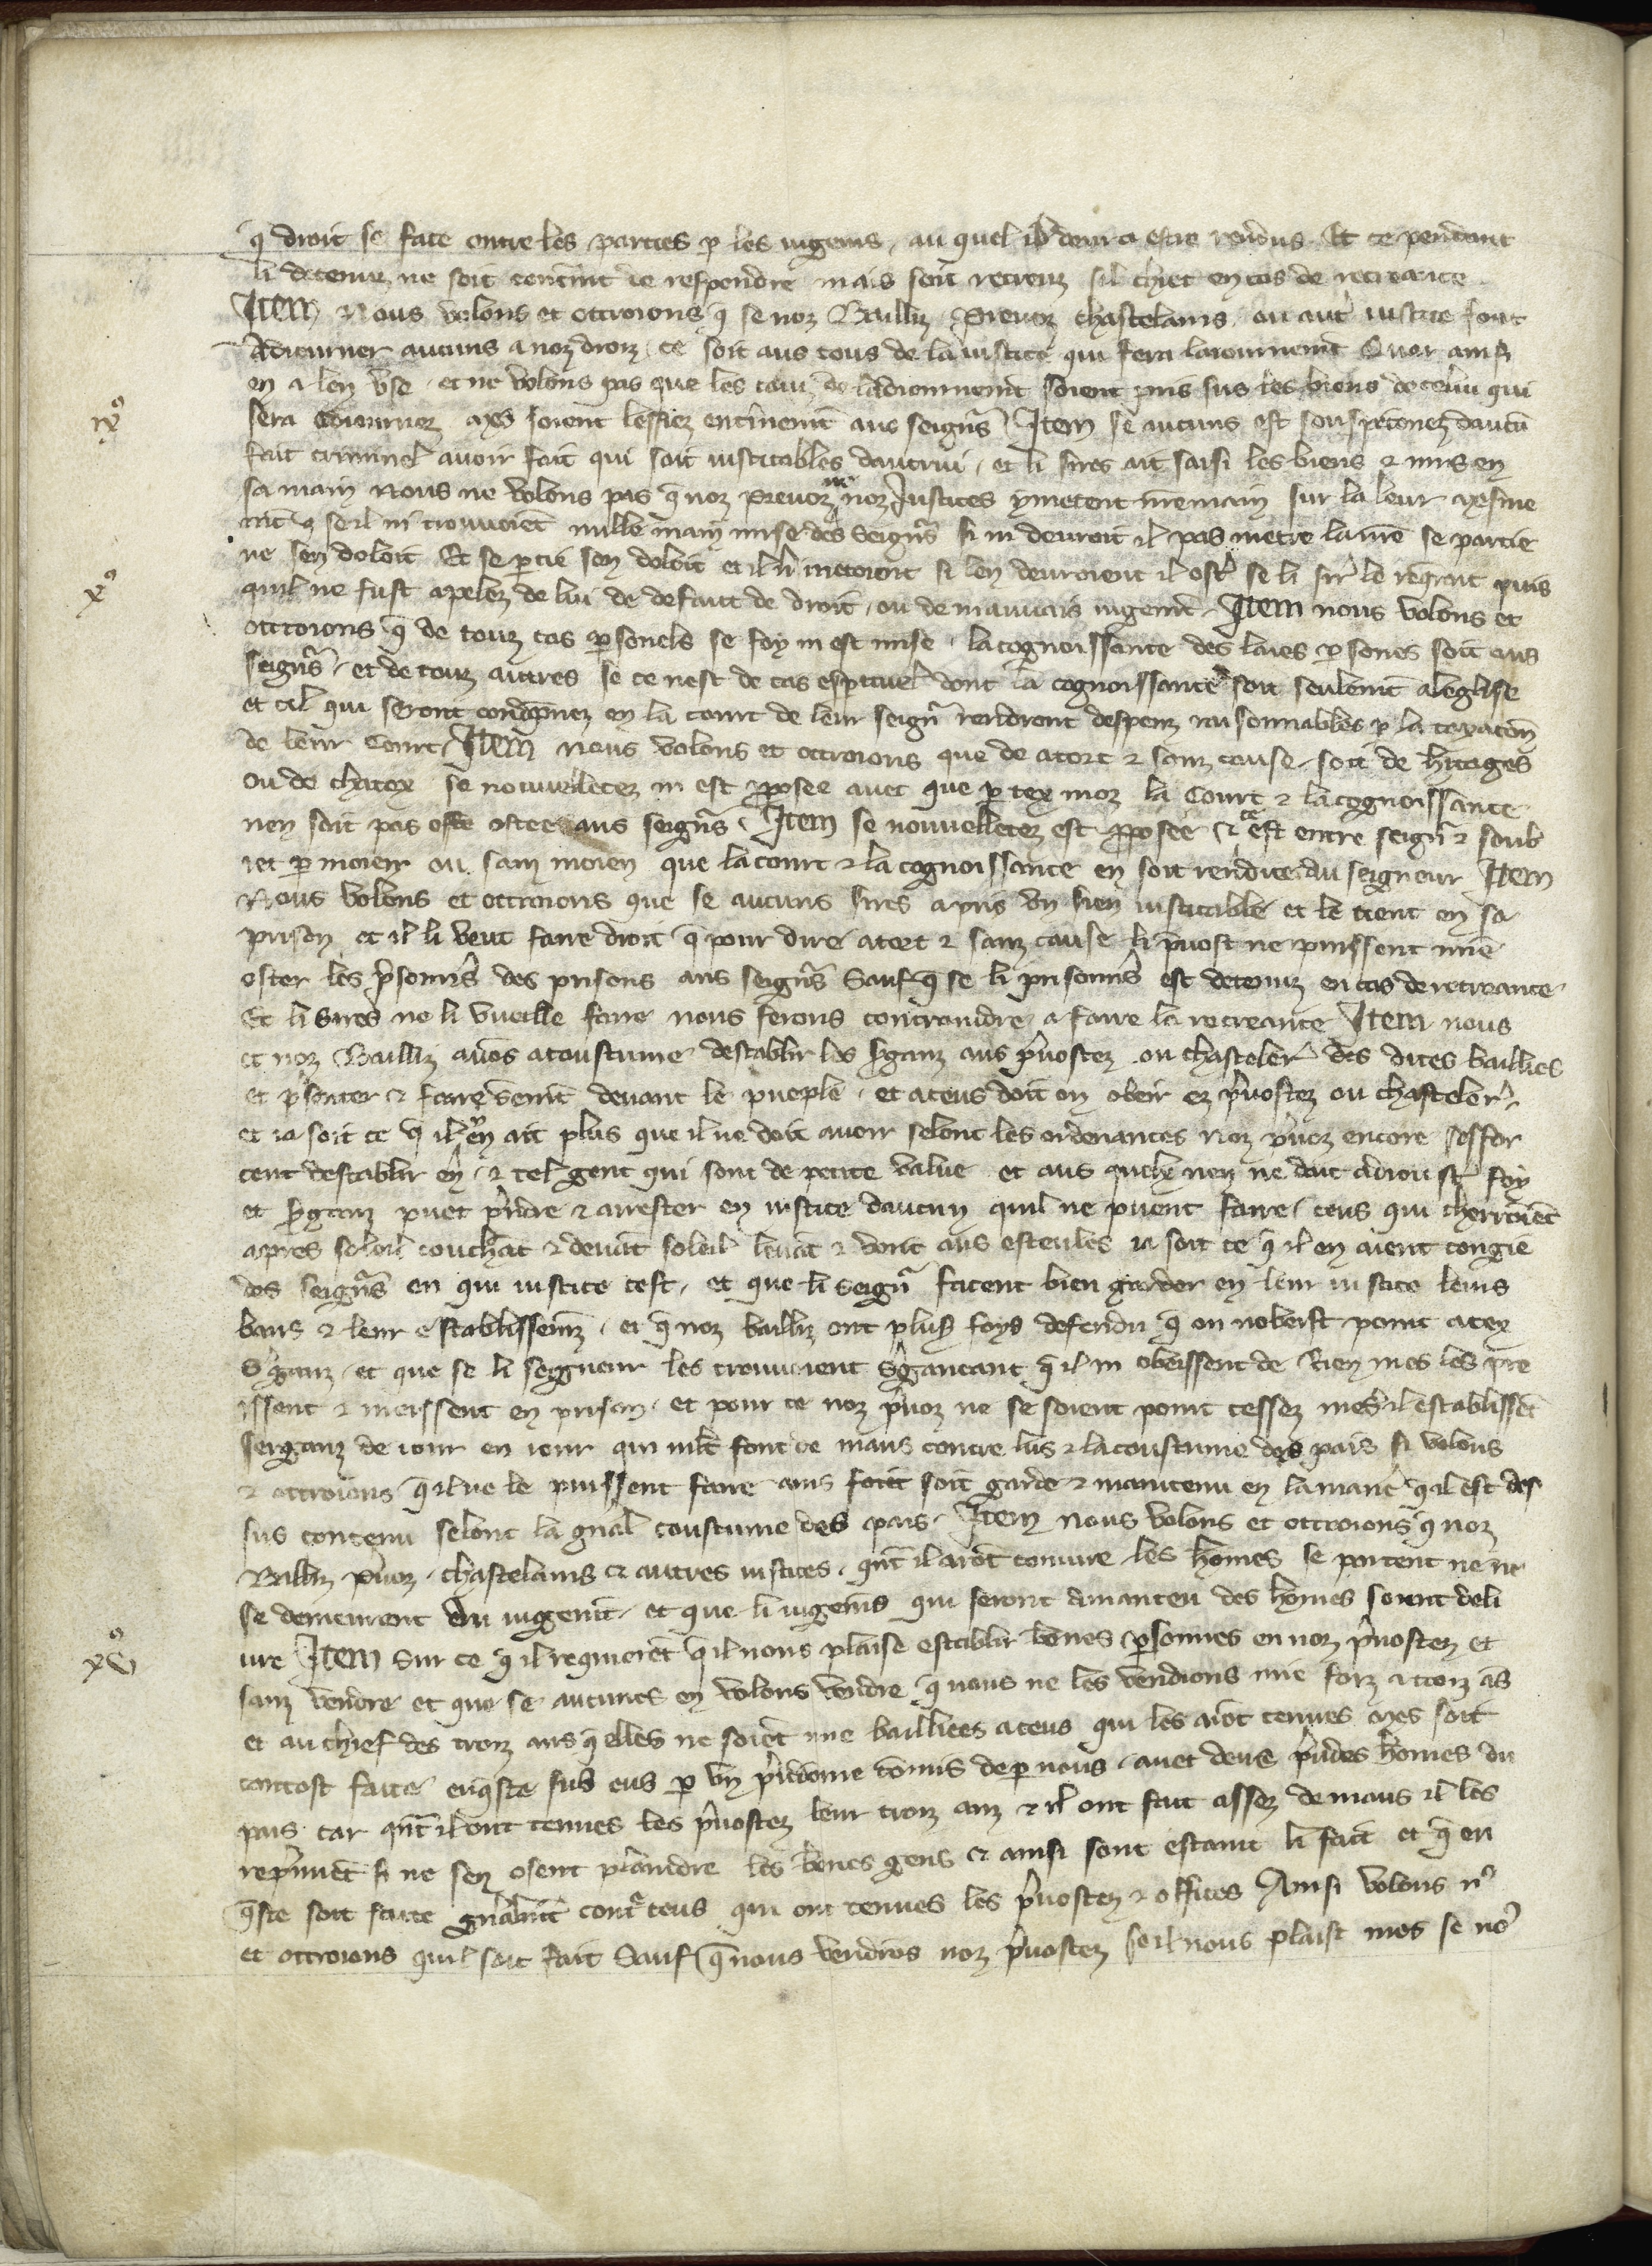 q̄ droit se face entre les parties p̱ les iugemēs, au quel il deura estre rendus. Et ce pendant
li detenuz ne soit contreint de respondre mais soit recreuz sil chiet en cas de recreance.
Item Nous volons et ottroions q̄ se noz Bailliz, Preuoz chastelains, ou autre iustice font
Adiourner aucuns a noz droiz, ce soit aus cous de la iustice qui fera laiournement Quar ainsi
en a len vse, et ne volons pas que les couz de ladiournemēt soient pris sus les biens de celui qui
sera adiournez. Mes soient lessiez entierement aus seignrs Item se aucuns est souspeconnez daucū
ixº
fait criminel auoir fait qui soit iusticables dautrui, et li sires ait saisi les biens & mis en
sa main Nous ne volons pas q̄ noz preuoz ne noz Justices ymetent mie main sur la leur mesme
mēt q̄ se il ni trouuoiēt nulle main mise des seigrs̄ si ni deuroit il pas metre la nr̄e se partie
ne sen doloit Et se p̱tie sen doloit et il li metoient si len deuroient il oster se li sires le reqroit puis
xº
quil ne fust apelez de lui de defaut de droit, ou de mauuais iugemēt. Item nous volons et
ottroions q̄ de touz cas p̱sonels se foy ni est mise, la cognoissance des laies p̱sones soit aus
seigrs̄, et de touz autres se ce nest de cas espirituel dont la cognoissance soit seulemēt aleglise
et cil qui seront condēpnez en la court de leur seignr̄ rendront despenz raisonnables p̱ la taxacōn
de leur Court. Item nous volons et ottroions que de atort & sanz cause, soit de hitages
ou de chatex se nouuelletez ni est proposee auec que p̱ tex moz la Court & la cognoissance
nen soit pas oste ostee aus seigrs̄. Item se nouuelletez est proposee & ce est entre seignr̄ & soub
iet p̱ moien ou sanz moien que la court & la cognoissance en soit rendue au seigneur Item
Nous volons et ottroions que se aucuns sires a pris vn sien iusticable et le tient en sa
prison et il li veut faire droit q̄ pour dire atort & sanz cause li preuost ne puissent mie
oster les prisoniers des prisons aus seigrs̄ Sauf q̄ se li prisonniers est detenuz en cas de recreance
Et li sires ne li vueille faire nous ferons contraindre a faire la recreance Item nous
et noz Bailliz auōs acoustume destablir les serganz aus preuostez ou chasteleries des dites baillies
et p̄senter & faire sermēt deuant le pueple, et a ceus doit on obeir ez preuostez ou chasteleries
et ia soit ce q̄ il en ait plus que il ne doit auoir selonc les ordenances Noz preuoz encore seffor
cent destablir en, & tel gent qui sont de petite value et aus quelx nen ne doit adiouster foy
et serganz puet prendre & arrester en iustice daucun quil ne puent faire, ceus qui cherroient
apres soleil couchāt & deuāt soleil leuāt & vont aus esteules ia soit ce q̄ il en aient congie
des seigrs̄ en qui iustice cest, et que li seignr̄ facent bien garder en leur iustice leurs
bans & leur establissemz, et q̄ noz bailliz ont plus foys defendu q̄ on nobeist point a tex
Serganz, et que se li seigneur les trouuoient serganntant q̄ il ni obeissent de rien mes les pre
issent & meissent en prison, et pour ce noz preuoz ne se soient point cessez mes il establissēt
serganz de iour en iour qui mlt̄ font de maus contre lus & la coustume des pais si volons
& ottroions q̄ il ne le puissent faire ains soit garde & maintenu en la maniere q̄ il est des
sus contenu selonc la gnal coustume des pais. Item nous volons et ottroions q̄ noz
Bailliz preuoz, chastelains & autres iustices, qnt̄ il aront coniure les homes se partent ne ne
se demeurent du iugemēt, et que li iugemēs qui seront amanteu des homes soient deli
ure Item Sur ce q̄ il requieret q̄ il nous plaise establir bones p̱sonnes en noz preuostez et
xvº
sanz vendre et que se aucunes en volons vendre q̄ nous ne les vendions mie fors a trois ās
et au chief des trois ans q̄ elles ne soiēt mie bailliees a ceus qui les aront tenues mes soit
tantost faite enqueste sus eus p̱ vn preudome cōmis de p̱ nous, auec deus preudes homes du
pais. car qnt̄ il ont tenues les preuostez leur trois anz & il ont fait assez de maus il les
repriuēt si ne sen osent plaindre les bones gens & ainsi sont estaint li fait et q̄ en
queste soit faite gnalmēt contre ceus qui ont tenues les preuostez & offices Ainsi volons no9
et ottroions quil soit fait Sauf q̄ nous vendions noz preuostez se il nous plaist mes se no9